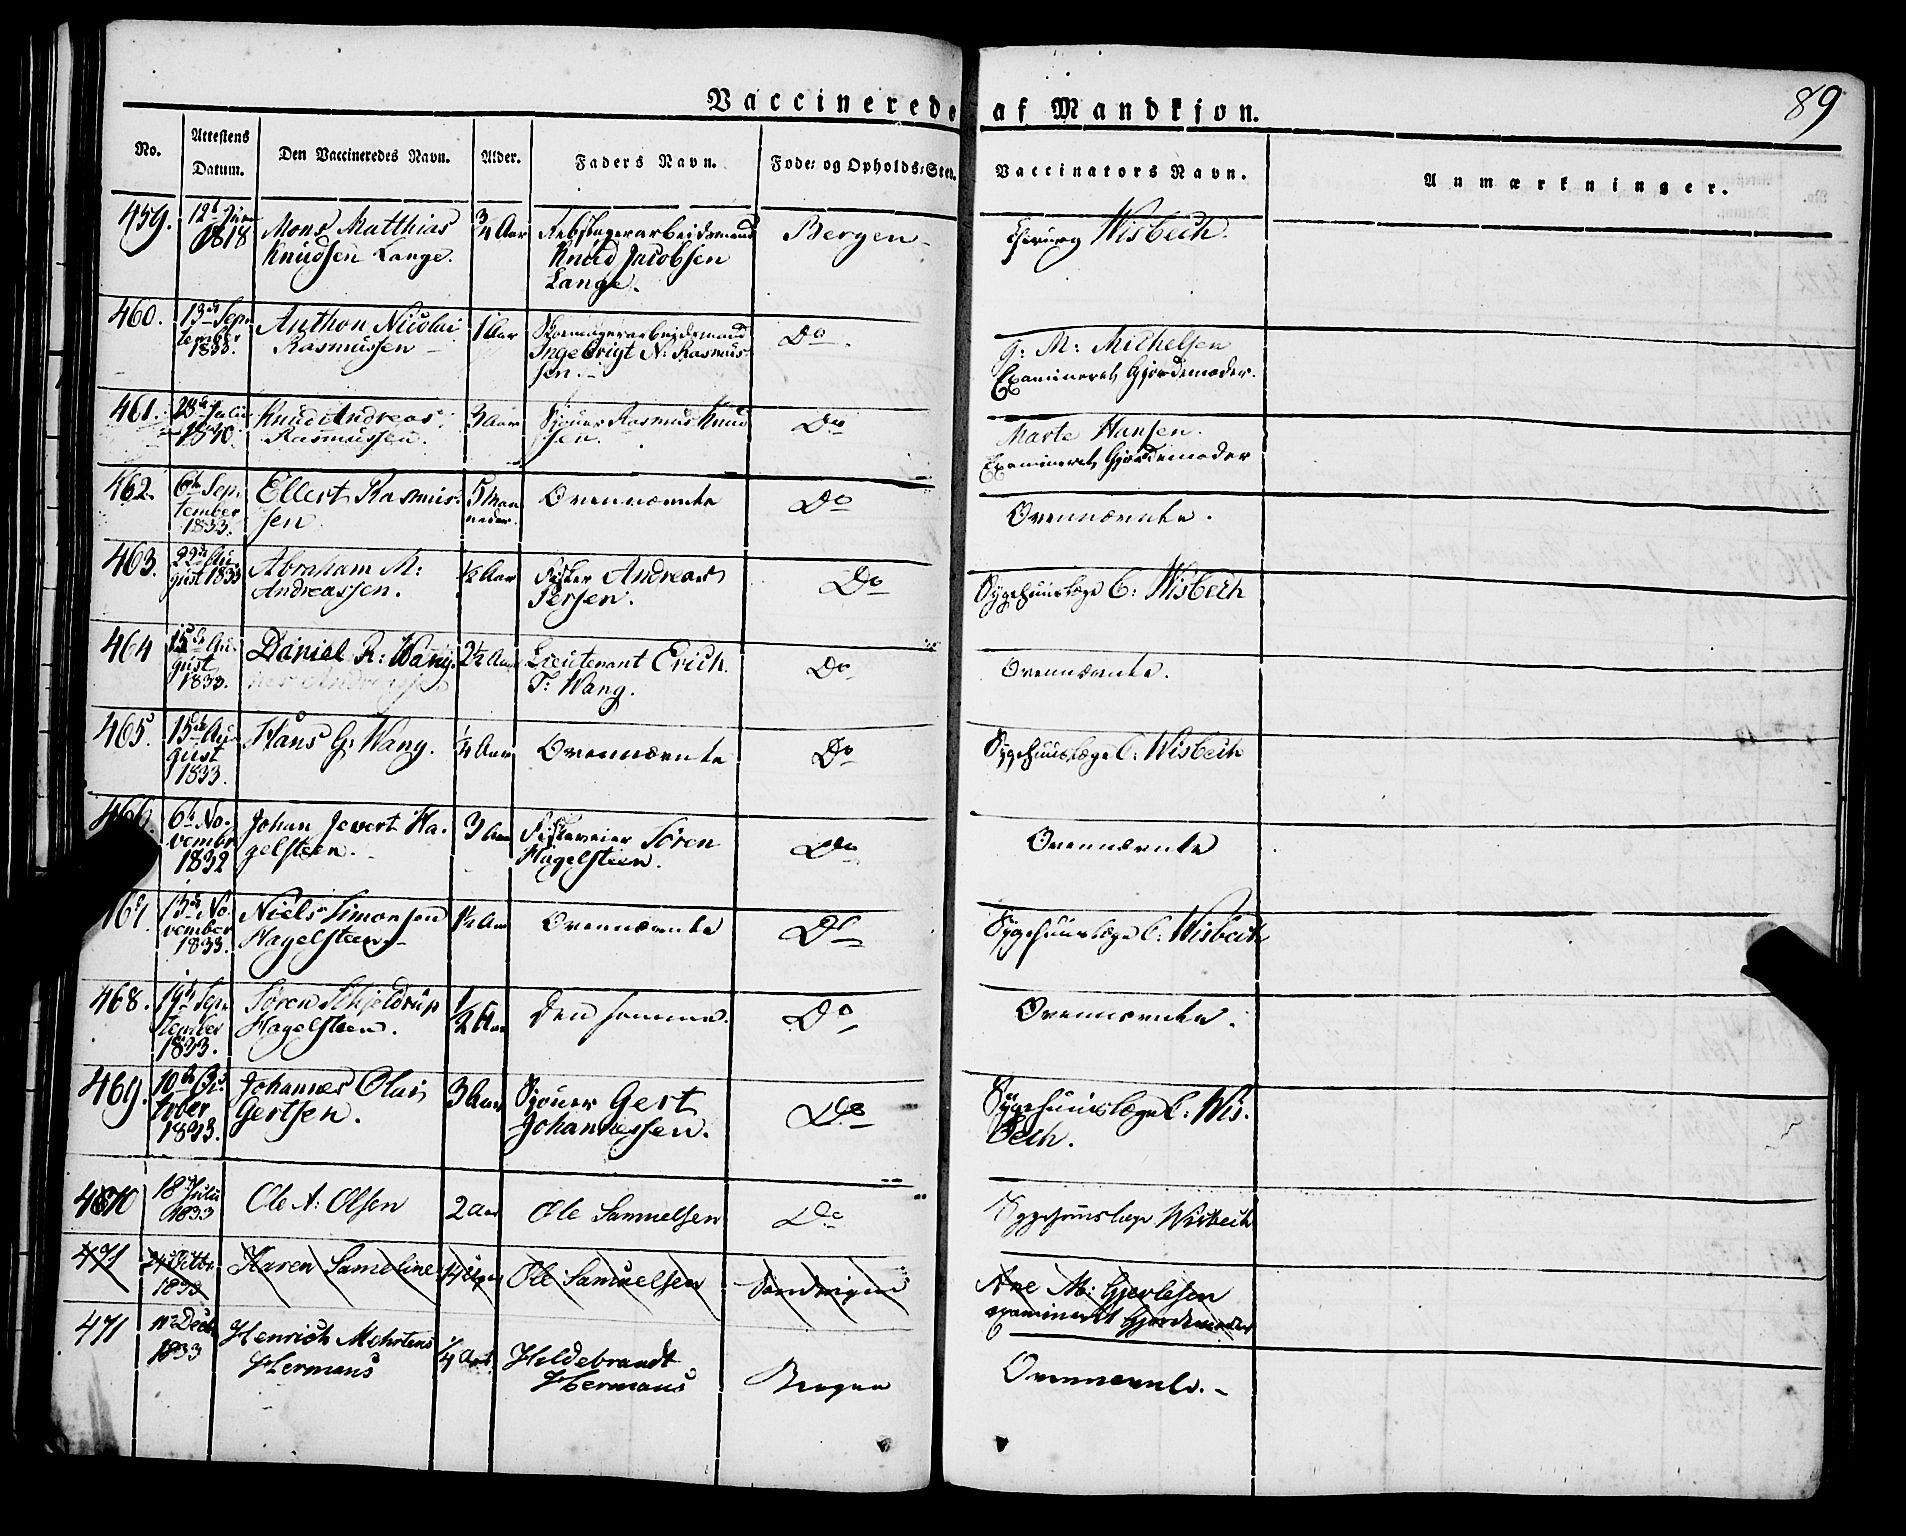 Vaccinerede af Mandkjøn.
89
No. Attestens Datum. Den Vaccineredes Navn. Alder. Faders Navn. Føde- og Opholds-Sted. Vaccinators Navn. Anmærkninger.
459. 12te Juni 1818 Mons Matthias Knudsen Lange. 3/4 Aar Rebslagerarbeidsmand Knud Jacobsen Lange. Bergen Chirurg Wisbech.
460. 13de September 1833. Anthon Nicolai Rasmussen 1 Aar Skomagerarbeidsmand Ingebrigt N. Rasmussen. Do G: M: Michelsen Examineret Gjordemoder.
461. 28de Julii 1830. Knud Andreas Rasmussen. 3 Aar Sjouer Rasmus Knudssen. Do Marte Hansen. Examineret Gjordemoder
462. 6te September 1833. Ellert Rasmussen 5 Maaneder. Ovennævnte Do Ovennævnte.
463. 22de August 1833 Abraham M: Andreassen. 1/2 Aar Fisker Andreas Persen. Do Sygehuuslæge C: Wisbech
464 15de August 1833. Daniel R: Wang. 2 1/2 Aar Lieutenant Erich T: Wang. Do Ovennævnte.
465. 15de August 1833. Hans G: Wang. 1/4 Aar Ovennævnte Do Sygehuuslæge C: Wisbech
466. 6te November 1832 Johan Jevert Hagelsteen. 3 Aar Søren Hagelsteen. Do Ovennævnte
467. 13de November 1833. Niels Simonsen Hagelsteen. 1 1/2 Aar Ovennævnte Do Sygehuuslæge C: Wisbech
468. 19de September 1833. Søren Schjeldrup Hagelsteen. 1/2 Aar Den samme. Do Ovennævnte.
469. 10de October 1833. Johannes Olai Gertsen. 3 Aar Sjouer Gert Johannessen. Do Sygehuuslæge C: Wisbech.
470 18de Julii 1833 Ole A: Olsen 2 Aar Ole Samuelsen Do Sygehuuslæge Wisbech
471 24 Octbr 1833 Karen Sameline 4 Uger Ole Samuelsen Sandvigen Ane M: Gjertsen examineret Gjordemoder
471 11te Decb 1833 Henrich Mehrtens Hermans 1/4 Aar Hildebrandt Hermans Bergen Ovennævnte.